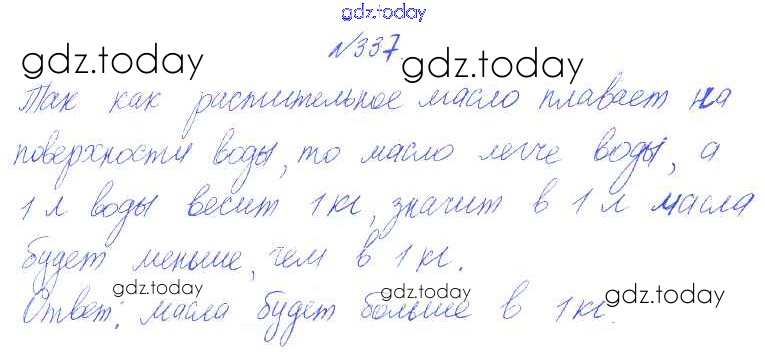 gdz.today
№337.
gdz.today gdz.today
Так как растительное масло плавает на
поверхности воды, то масло легче воды, а
1 л воды весит 1 кг, значит в 1 л масла
будет меньше, чем в 1 кг.
gdz.today gdz.today gdz.today
Ответ: масла будет больше в 1 кг.